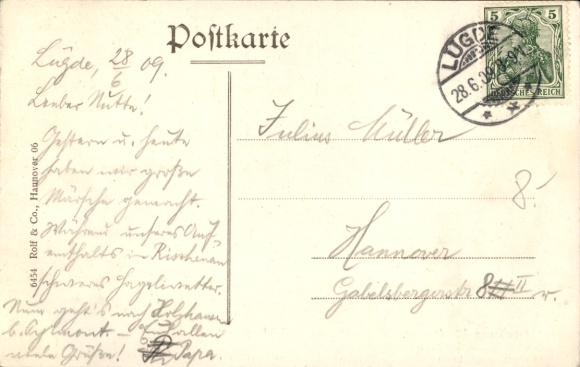 Postkarte
Lügde, 28/6 09.
Lieber Mutte!
Gestern u. heute
haben wir große
Märsche gemacht.
Während unseres Auf-
enthalts in Rischenau
schweres Hagelwetter.
Nun geht's nach Holzhausen
b. Pyrmont. – Euch allen
viele Grüße! Papa.
6454 Rolf & Co., Hannover 06
LÜGDE
28.6.09
5 5
DEUTSCHES REICH
Julius Müller
8.-
Hannover
Gabelsbergerstr. II r.